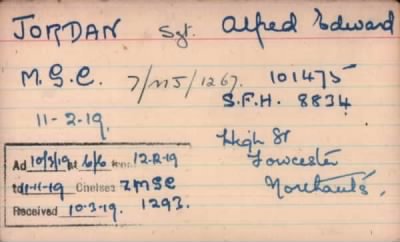 JORDAN Sgt. Alfred Edward
M.G.C. 7/MS/1267. 101475
S.F.H. 8834
11-2-19.
High St
Towcester
Northants.
Ad 10/3/19 at 6/6 from 12-2-19
td 11-11-19 Chelsea ZMSC
Received 10-3-19. 1293.